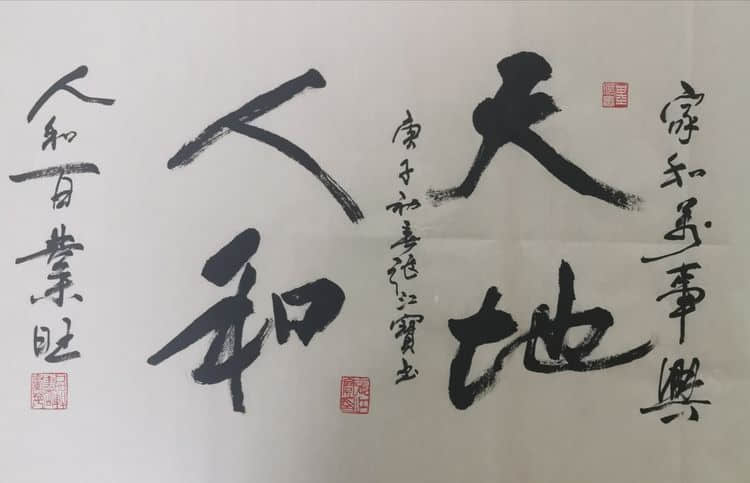 家和万事興
天地
庚子初春張江寶书
人和
人和百業旺